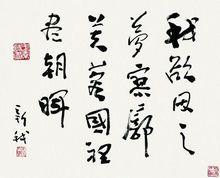 我欲因之
夢寥廓
芙蓉國裡
尽朝暉
新我